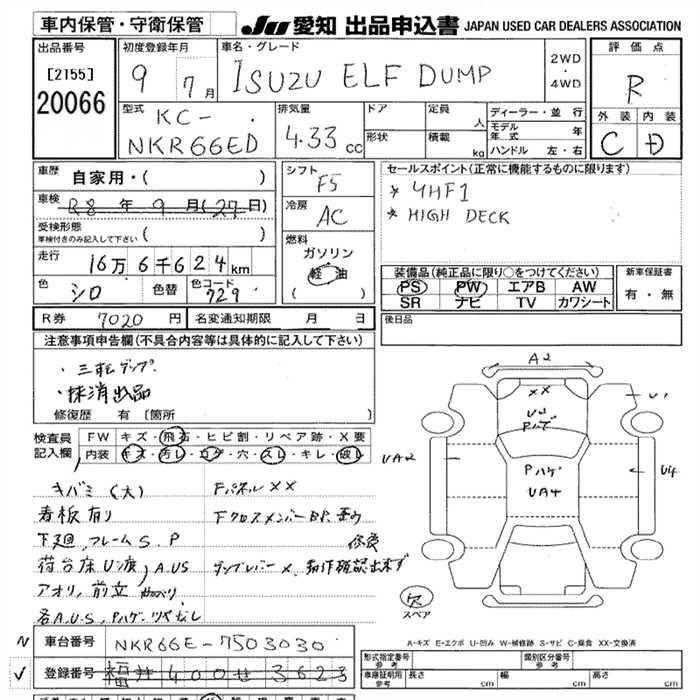 車内保管・守衛保管
JU 愛知 出品申込書 JAPAN USED CAR DEALERS ASSOCIATION
出品番号
[2155]
20066
初度登録年月
9 7月
車名・グレード
ISUZU ELF DUMP
2WD
・
4WD
評価点
R
外装 内装
C D
型式
KC-
NKR66ED
排気量
4.33 cc
ドア
形状
定員 人
積載 kg
ディーラー・並行
モデル年式 年
ハンドル 左・右
車歴
自家用・( )
車検
R8年 9月(27日)
受検形態
車検付きのみ記入して下さい ( )
走行
16万 6千624km
色 シロ 色替 色コード 729
シフト
F5
冷房
AC
燃料
ガソリン
軽油
( )
セールスポイント(正常に機能するものに限ります)
* 4HF1
* HIGH DECK
装備品(純正品に限り○をつけてください)
PS PW エアB AW
SR ナビ TV カワシート
新車保証書
有・無
R券 7020円 名変通知期限 月 日
後日品
注意事項申告欄(不具合内容等は具体的に記入して下さい)
・三転ダンプ
・抹消出品
修復歴 有 〔箇所 〕
検査員
記入欄
FW キズ・飛石・ヒビ割・リペア跡・X要
内装 キズ・汚レ・コゲ・穴・スレ・キレ・破レ
キバミ(大)
看板有り
下廻、フレームS.P
荷台床U・凹、A.US
アオリ、前立
各A.U.S、Pハゲ、ツヤなし
Fパネル××
FクロスメンバーBP、歪み
修復
ダンプレバー×、動作確認出来ず
A2
××
U2
Pハゲ
U1
UA2
Pハゲ
UA4
U4
欠
スペア
A-キズ E-エクボ U-凹み W-補修跡 S-サビ C-腐食 XX-交換済
車台番号 NKR66E-7503030
登録番号 福井400せ3623
型式指定番号
参考
個別区分番号
参考
車庫証明用
参考
長さ cm 幅 cm 高さ cm